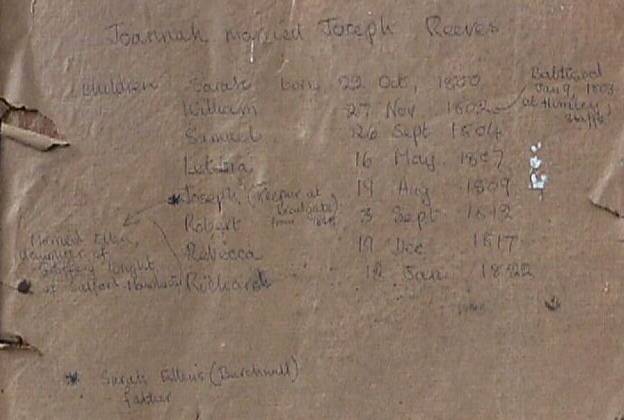 Joannah married Joseph Reeves
children Sarah born 22 Oct, 1800
William 27 Nov 1802
Baptised
Jan 9, 1803
at Himley,
Staffs
Samuel 26 Sept 1804
Letitia 16 May 1807
*Joseph (Keeper at 14 Aug 1809
Bradgate)
from
Robert 3 Sept 1812
Rebecca 19 Dec 1817
Richard 12 Jan 1822
Married Ellen,
daughter of
Wright
of
* Sarah Ellen's (Burchnall)
father